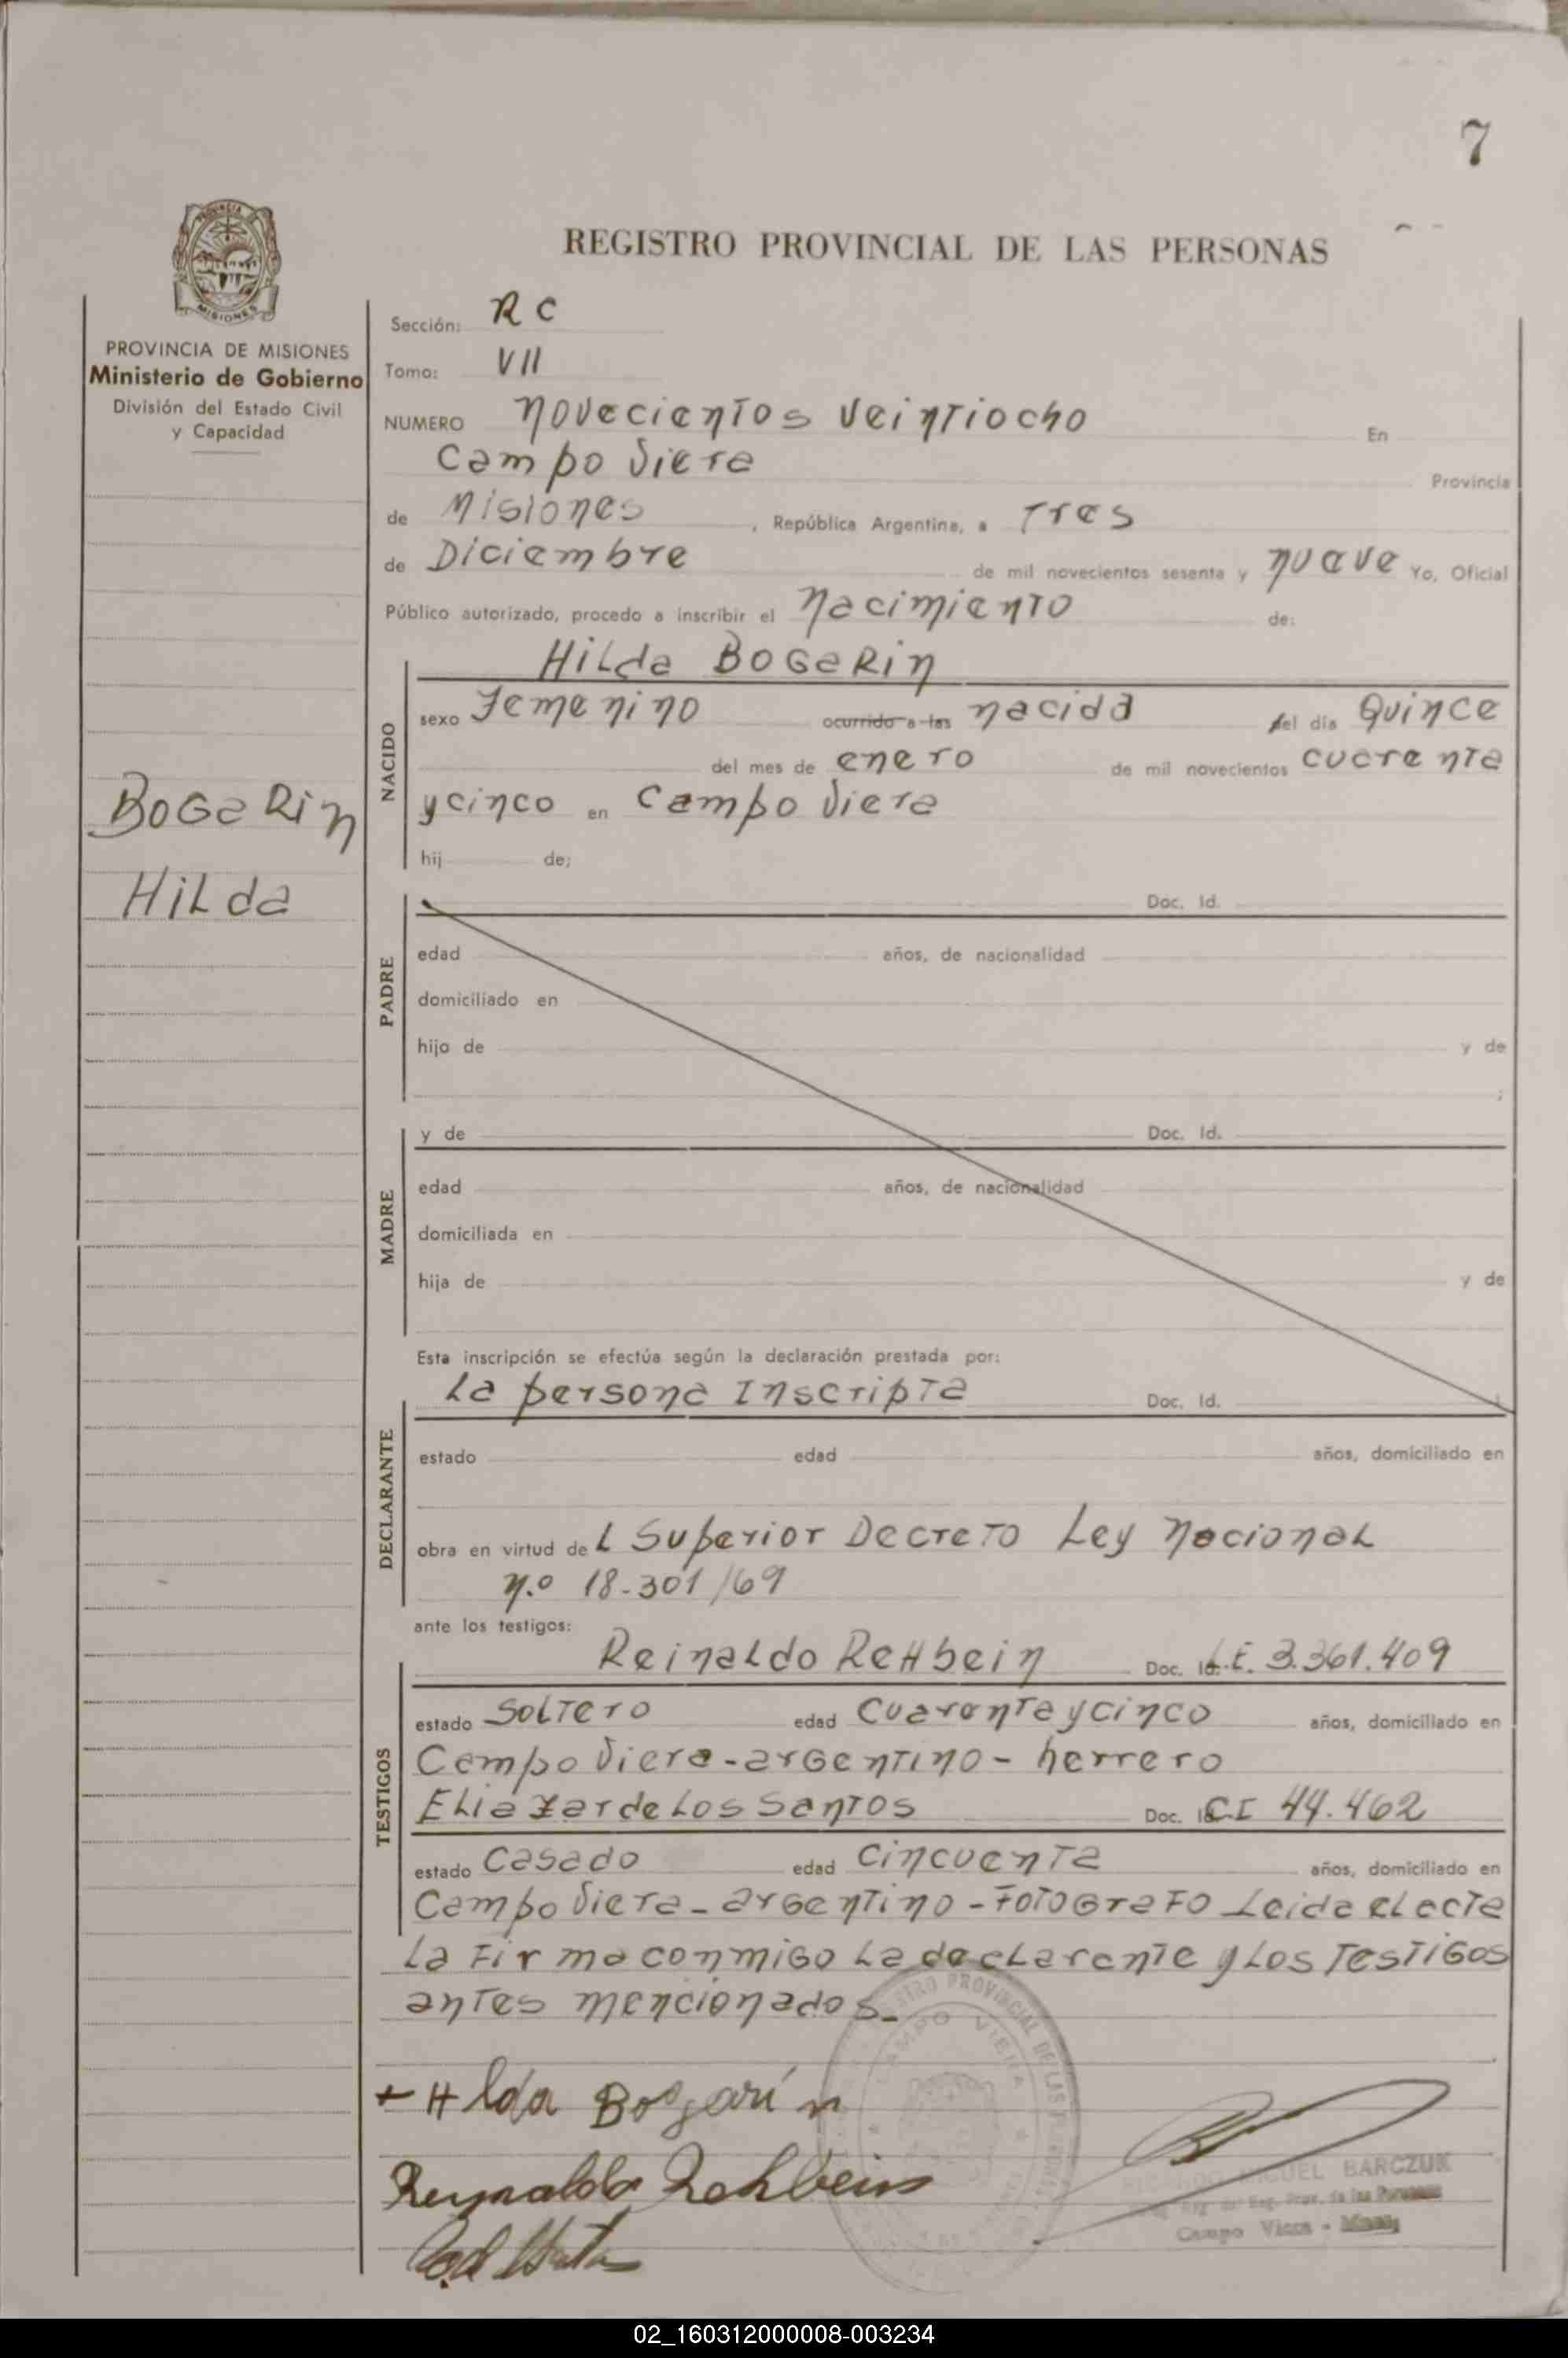 7
REGISTRO PROVINCIAL DE LAS PERSONAS
PROVINCIA DE
MISIONES
PROVINCIA DE MISIONES
Ministerio de Gobierno
División del Estado Civil
y Capacidad
BOGaRin
HiLda
Sección: RC
Tomo: VII
NUMERO novecientos veintiocho En
Campo Viera Provincia
de Misiones, República Argentina, a Tres
de Diciembre de mil novecientos sesenta y nueve Yo, Oficial
Público autorizado, procedo a inscribir el nacimiento de:
NACIDO
HiLda BOGaRin
sexo Femenino ocurrido a las nacida del día Quince
del mes de enero de mil novecientos cuarenta
ycinco en Campo Viera
hij de;
PADRE
Doc. Id.
edad años, de nacionalidad
domiciliado en
hijo de y de
;
MADRE
y de Doc. Id.
edad años, de nacionalidad
domiciliada en
hija de y de
Esta inscripción se efectúa según la declaración prestada por:
DECLARANTE
La persona Inscripta Doc. Id.
estado edad años, domiciliado en
obra en virtud de L Superior Decreto Ley nacional
n.o 18-301/69
ante los testigos:
TESTIGOS
Reinaldo ReHbein Doc. Id. L.E. 3.361.409
estado Soltero edad Cuarenta y cinco años, domiciliado en
Campo Viera - arGentino - herrero
Eliazar de Los Santos Doc. Id. C.I 44.462
estado Casado edad Cincuenta años, domiciliado en
Campo Viera - arGentino - FotoGraFo Leida el acta
La Firma conmiGo La declarante y Los TestiGos
antes mencionados.-
REGISTRO PROVINCIAL DE LAS PERSONAS
CAMPO VIERA
Hlda Bogarín
Reynaldo Rehbein
MIGUEL BARCZUK
Reg. Prov. de las Personas
Campo Viera - Mnes
02_160312000008-003234